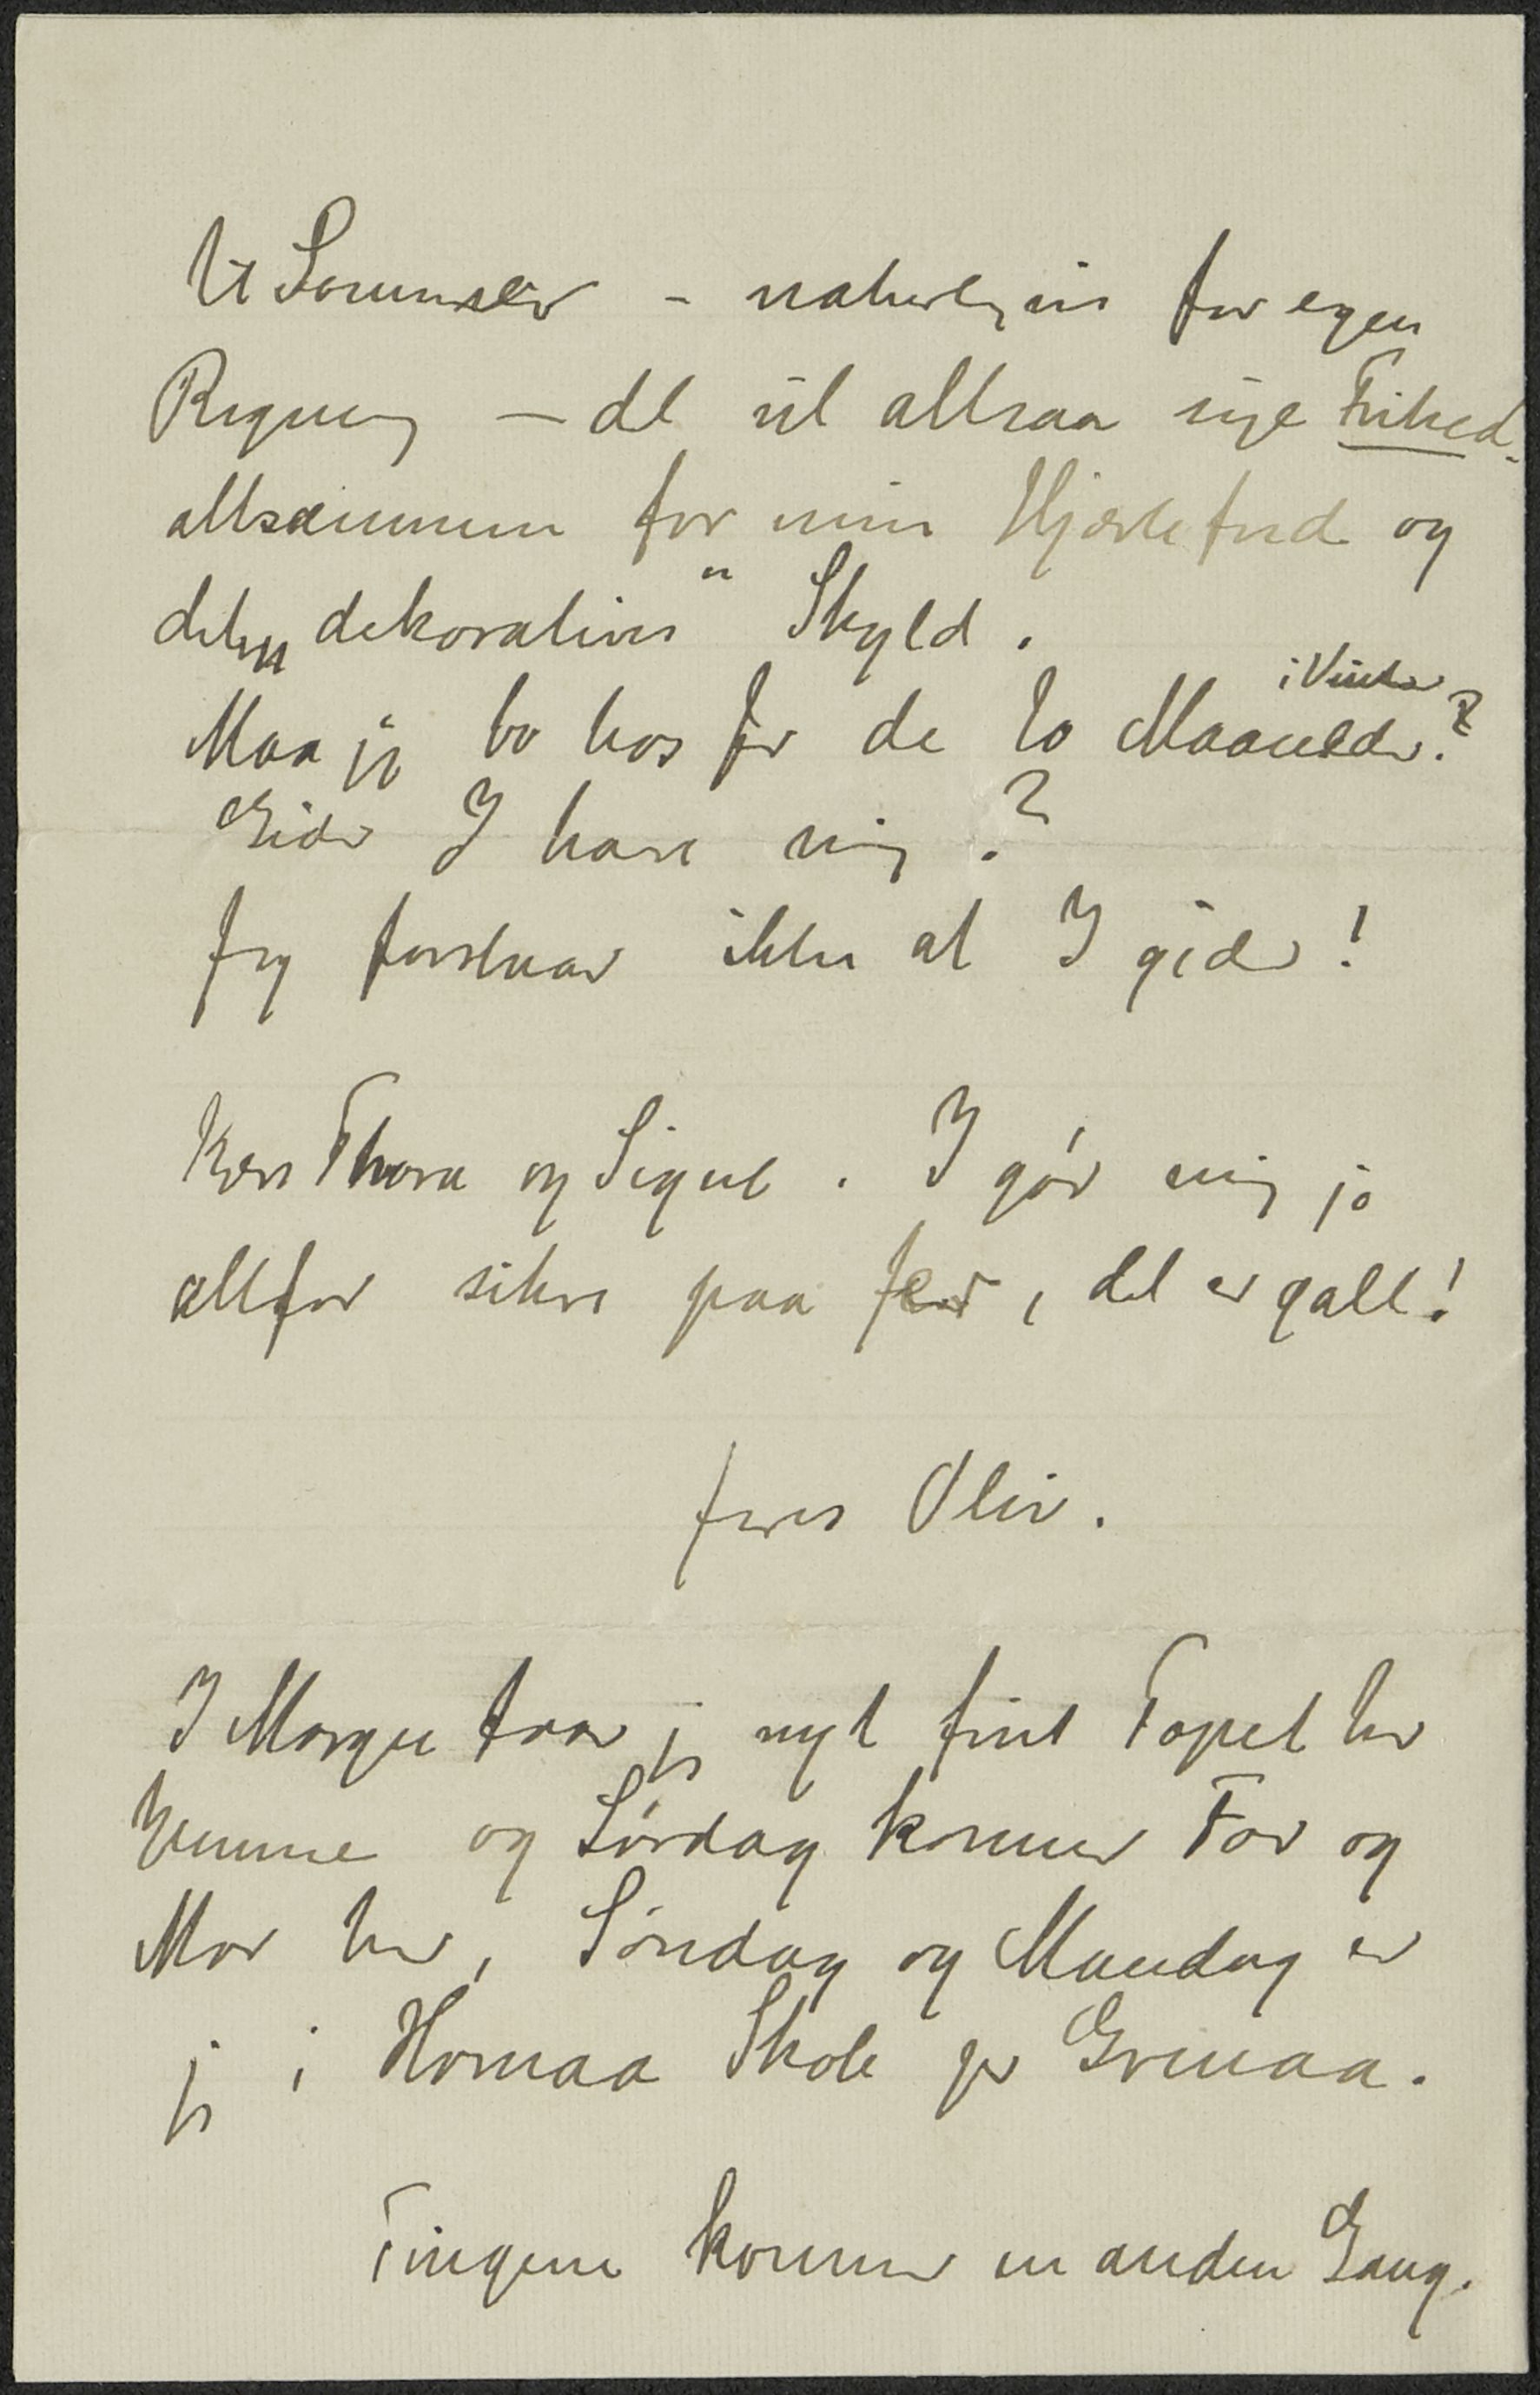 til Sommer – naturligvis for egen
Regning – det vil altsaa sige Frihed.
altsammen for min Hjærtefred og
det „dekorative" Skyld.
Maa jeg bo hos Jer de to Maaneder i Vinter?
Gider I have mig?
Jeg forstaar ikke at I gider!
Kære Thora og Sigurd. I gør mig jo
altfor sikre paa Jer, det er galt!
Jeres Oliv.
I Morgen faar jeg nyt fint Tapet her
hjemme og Lørdag kommer Far og
Mor her, Søndag og Mandag er
jeg i Homaa Skole pr Grenaa.
Tingene kommer en anden Gang.